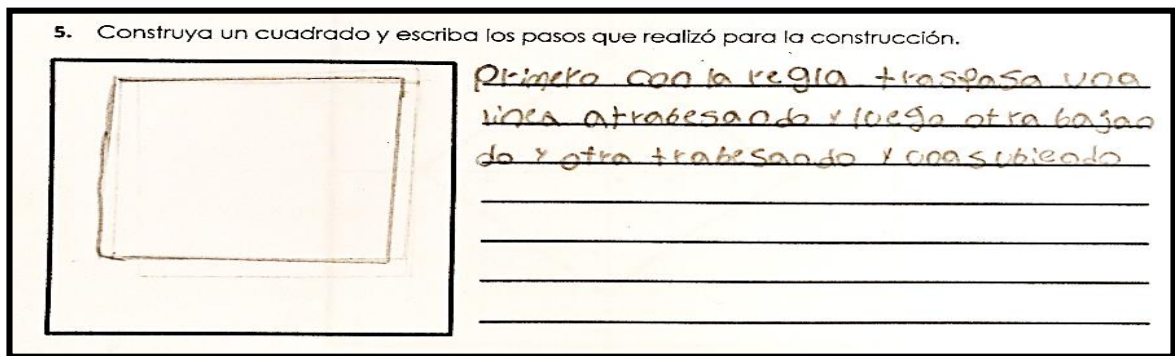 5. Construya un cuadrado y escriba los pasos que realizó para la construcción.
Primero con la regla traspasa una
linea atrabesando y luego otra bajan
do y otra trabesando y una subiendo